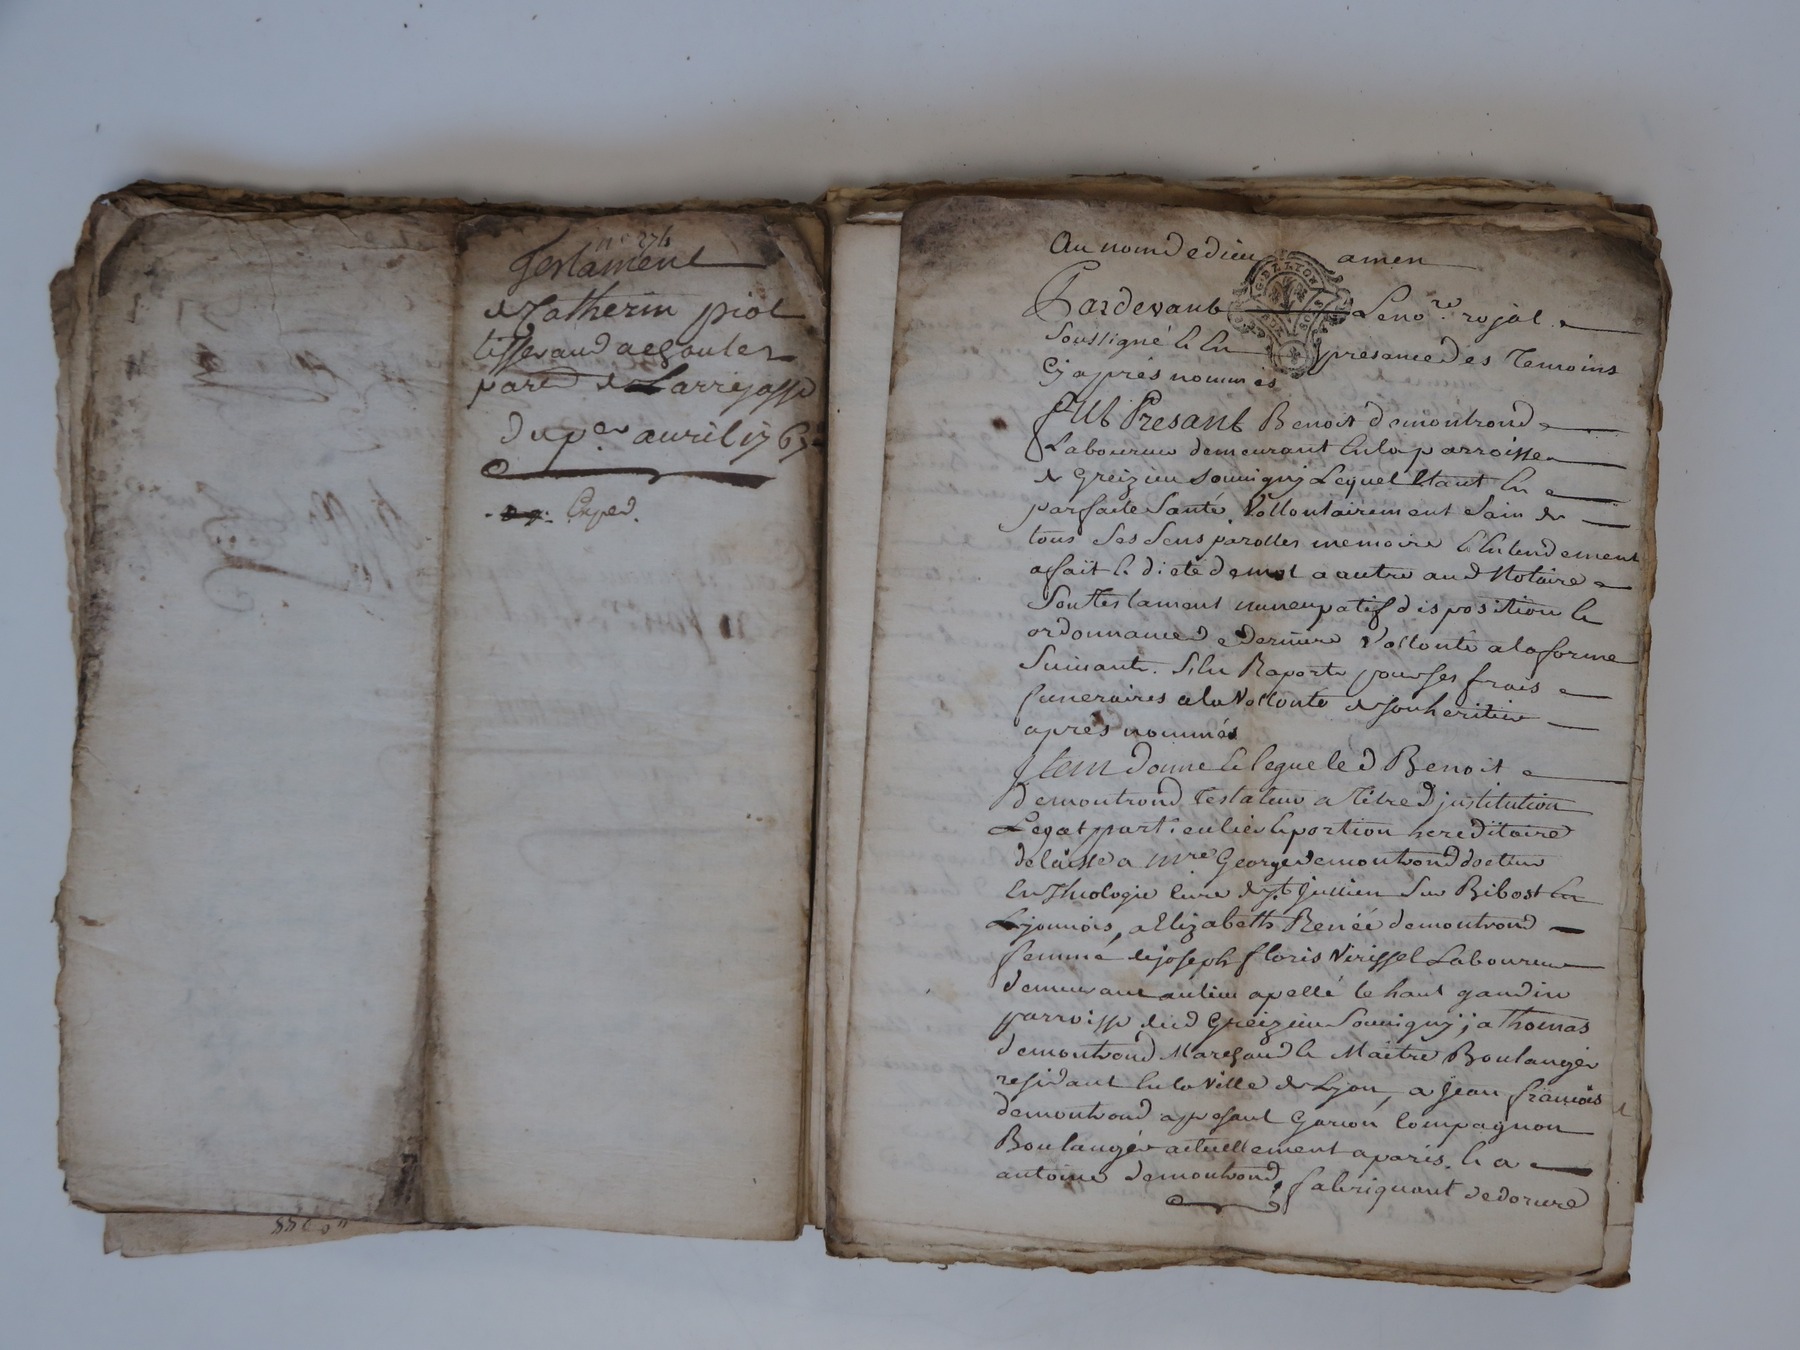 n° 274
Testament
de Catherin piol
tisserand a egoules
par.e de Larrajasse
du p.er avril 1763
Exped.
Au nom de dieu amen
Pardevant Le no.re royal
soussigné et en presance des Temoins
Cy après nommés
fut Présant Benoit demontrond
Laboureur demeurant en la parroisse
de Greizieu Souvigny Lequel Etant en
parfaite Santé, Vollontairement Sain de
tous Ses Sens parolles memoire et entendement
a fait et dicté de mot a autre aud Notaire
Son Testament nuncupatif disposition et
ordonnance de derniere Vollonté a la forme
Suivante. S'en Raporte pour ses frais
funeraires a la Vollonté de son heritier
après nommés
Item donne et legue led Benoit
demontrond Testateur a Titre d'justitution
Legat particulier et portion hereditaire
delaisse a mre George demontrond docteur
En Theologie curé de st Jullien Sur Bibost En
Lyonnois, a Elizabeth Renéé demontrond
femme de joseph floris Virissel Laboureur
demeurant au lieu apellé le haut gaudin
parroisse dud Greizieu Souvigny; a Thomas
demontrond Marchand et Maitre Boulangér
residant En la Ville de Lyon, a jean francois
demontrond a presant Garcon Compagnon
Boulangér actuellement a paris. et a
antoine demontrond, fabriquant de dorure